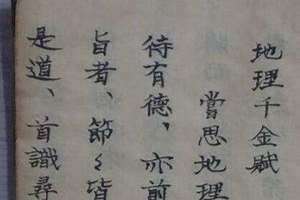 地理千金赋
嘗思地理
待有德、亦前
旨者、節々皆
是道、首識尋